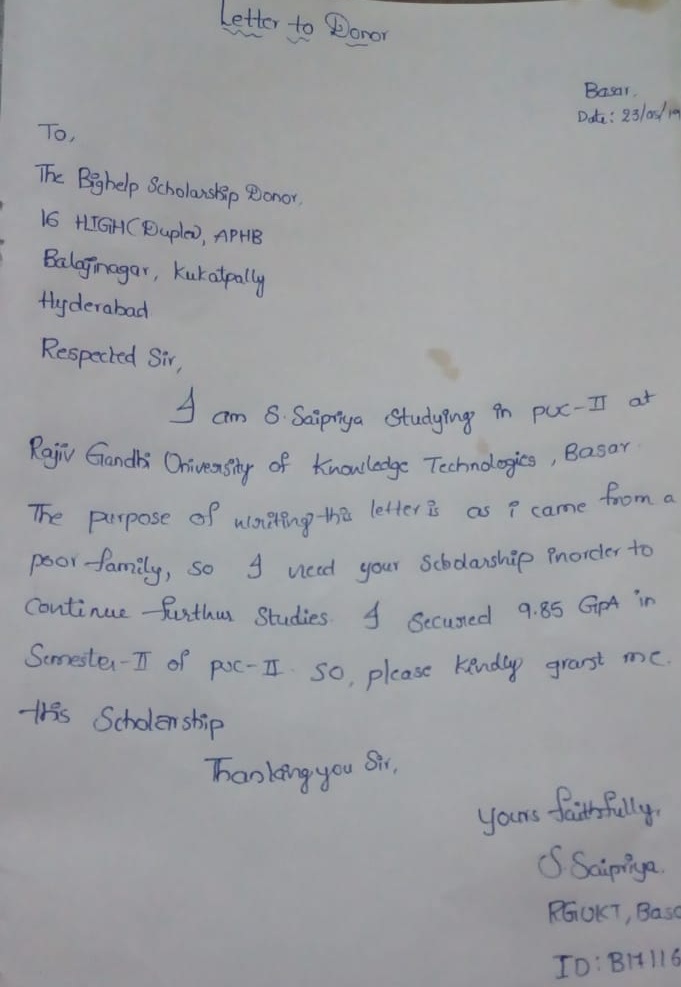 Letter to Donor
Basar,
Date: 23/05/19
To,
The Bighelp Scholarship Donor,
16 HIGH (Duplex), APHB
Balajinagar, Kukatpally
Hyderabad
Respected Sir,
I am S. Saipriya Studying in puc-II at
Rajiv Gandhi University of Knowledge Technologies, Basar
The purpose of writing this letter is as i came from a
poor family, so I need your Scholarship inorder to
Continue furthur Studies. I Secured 9.85 GPA in
Semester-II of puc-II. So, please kindly grant me.
this Scholarship
Thanking you Sir,
yours faithfully,
S. Saipriya.
RGUKT, Basa
ID: B17116